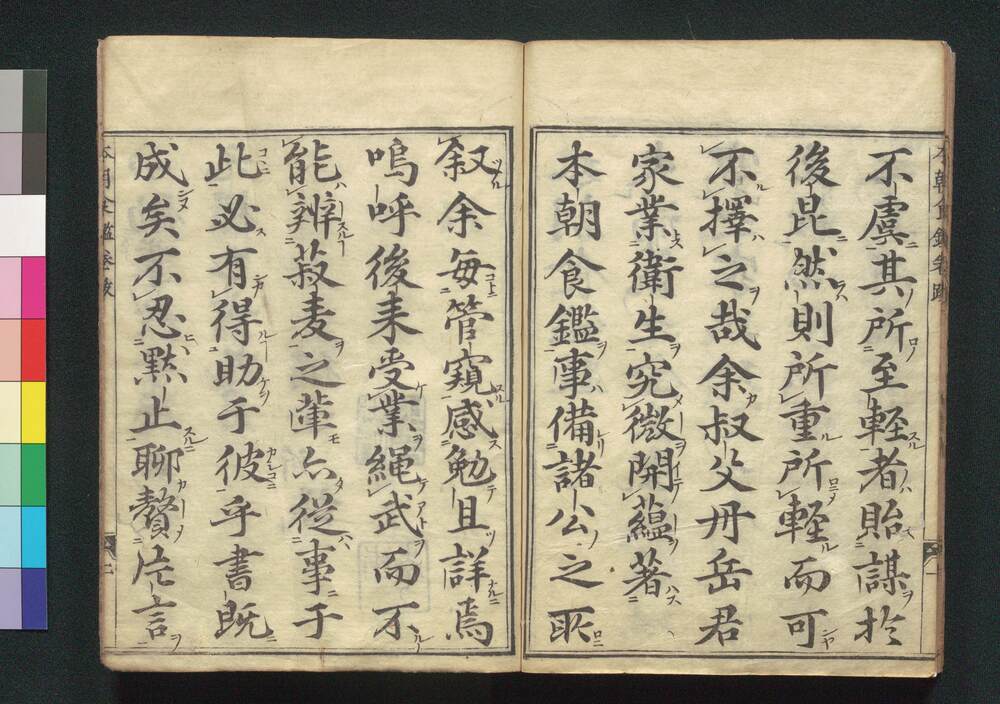 不虞其所至輕者貽謀於
後昆然則所重所輕而可
不擇之哉余叔父丹岳君
家業衛生究微開蘊著
本朝食鑑事備諸公之所
叙余毎管窺感勉且詳焉
嗚呼後来受業繩武而不
能辨菽麦之輩亦從事于
此必有得助于彼乎書既
成矣不忍黙止聊贅片言